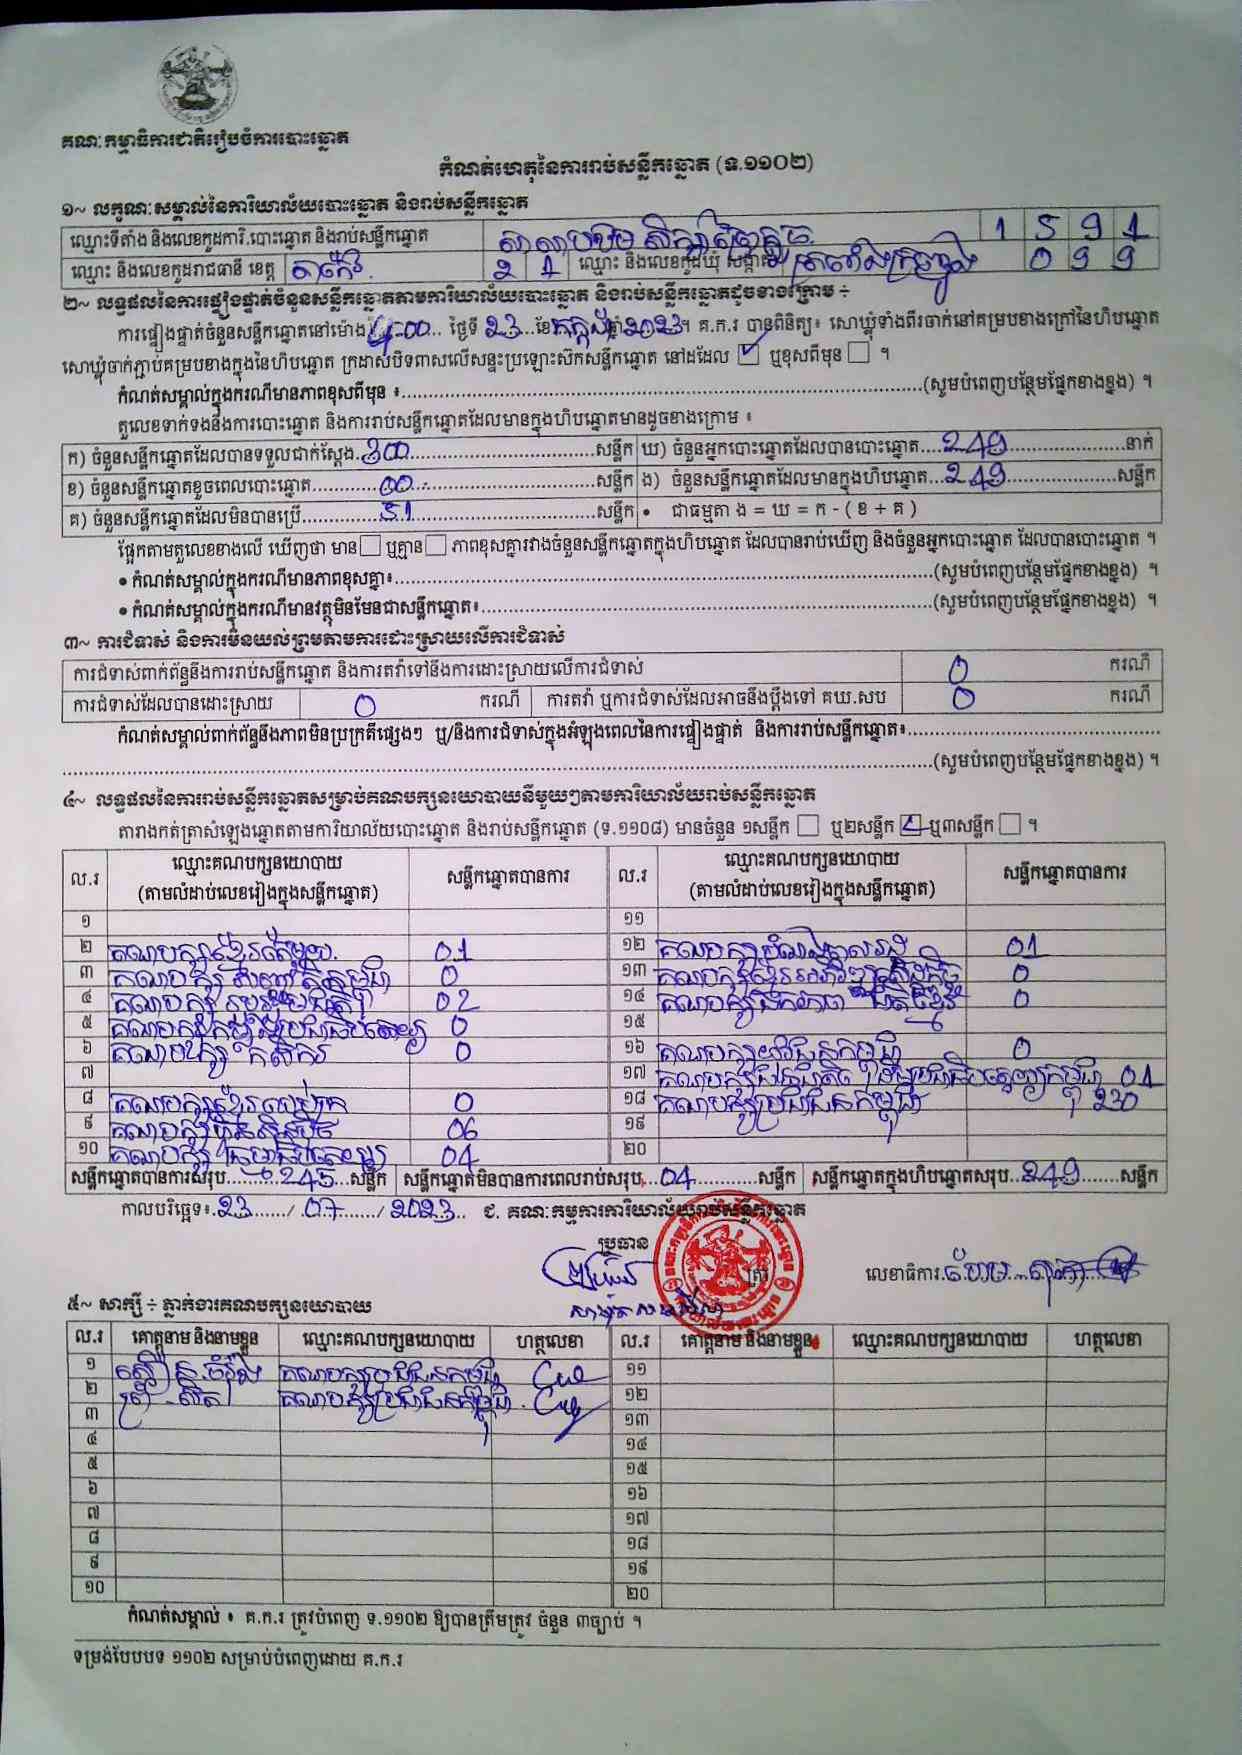 គណៈកម្មាធិការជាតិរៀបចំការបោះឆ្នោត
កំណត់ហេតុនៃការរាប់សន្លឹកឆ្នោត (ទ.១១០២)
១~ លក្ខណៈសម្គាល់នៃការិយាល័យបោះឆ្នោត និងរាប់សន្លឹកឆ្នោត
ឈ្មោះទីតាំង និងលេខកូដការិ.បោះឆ្នោត និងរាប់សន្លឹកឆ្នោត 1 5 9 1
ឈ្មោះ និងលេខកូដរាជធានី ខេត្ត តាកែវ 2 1 ឈ្មោះ និងលេខកូដឃុំ សង្កាត់ 0 9 9
២~ លទ្ធផលនៃការផ្ទៀងផ្ទាត់ចំនួនសន្លឹកឆ្នោតតាមការិយាល័យបោះឆ្នោត និងរាប់សន្លឹកឆ្នោតដូចខាងក្រោម ÷
ការផ្ទៀងផ្ទាត់ចំនួនសន្លឹកឆ្នោតនៅម៉ោង 4:00 ថ្ងៃទី 23 ខែ កក្កដា ឆ្នាំ 2023 ។ គ.ក.រ បានពិនិត្យ៖ សោឃ្លុំទាំងពីរចាក់នៅគម្របខាងក្រៅនៃហិបឆ្នោត
សោឃ្លុំចាក់ភ្ជាប់គម្របខាងក្នុងនៃហិបឆ្នោត ក្រដាសបិទពាសលើសន្ទះប្រឡោះស៊កសន្លឹកឆ្នោត នៅដដែល ☑ ឬខុសពីមុន ☐ ។
កំណត់សម្គាល់ក្នុងករណីមានភាពខុសពីមុន ៖ (សូមបំពេញបន្ថែមផ្នែកខាងខ្នង) ។
តួលេខទាក់ទងនឹងការបោះឆ្នោត និងការរាប់សន្លឹកឆ្នោតដែលមានក្នុងហិបឆ្នោតមានដូចខាងក្រោម ៖
ក) ចំនួនសន្លឹកឆ្នោតដែលបានទទួលជាក់ស្តែង 300 សន្លឹក ឃ) ចំនួនអ្នកបោះឆ្នោតដែលបានបោះឆ្នោត 249 នាក់
ខ) ចំនួនសន្លឹកឆ្នោតខូចពេលបោះឆ្នោត 00 សន្លឹក ង) ចំនួនសន្លឹកឆ្នោតដែលមានក្នុងហិបឆ្នោត 249 សន្លឹក
គ) ចំនួនសន្លឹកឆ្នោតដែលមិនបានប្រើ 51 សន្លឹក • ជាធម្មតា ង = ឃ = ក - ( ខ + គ )
ផ្អែកតាមតួលេខខាងលើ ឃើញថា មាន ☐ ឬគ្មាន ☐ ភាពខុសគ្នារវាងចំនួនសន្លឹកឆ្នោតក្នុងហិបឆ្នោត ដែលបានរាប់ឃើញ និងចំនួនអ្នកបោះឆ្នោត ដែលបានបោះឆ្នោត ។
• កំណត់សម្គាល់ក្នុងករណីមានភាពខុសគ្នា៖ (សូមបំពេញបន្ថែមផ្នែកខាងខ្នង) ។
• កំណត់សម្គាល់ក្នុងករណីមានវត្ថុមិនមែនជាសន្លឹកឆ្នោត៖ (សូមបំពេញបន្ថែមផ្នែកខាងខ្នង) ។
៣~ ការជំទាស់ និងការមិនយល់ព្រមតាមការដោះស្រាយលើការជំទាស់
ការជំទាស់ពាក់ព័ន្ធនឹងការរាប់សន្លឹកឆ្នោត និងការតវ៉ាទៅនឹងការដោះស្រាយលើការជំទាស់ 0 ករណី
ការជំទាស់ដែលបានដោះស្រាយ 0 ករណី ការតវ៉ា ឬការជំទាស់ដែលអាចនឹងប្តឹងទៅ គឃ.សប 0 ករណី
កំណត់សម្គាល់ពាក់ព័ន្ធនឹងភាពមិនប្រក្រតីផ្សេងៗ ឬ/និងការជំទាស់ក្នុងអំឡុងពេលនៃការផ្ទៀងផ្ទាត់ និងការរាប់សន្លឹកឆ្នោត៖
(សូមបំពេញបន្ថែមផ្នែកខាងខ្នង) ។
៤~ លទ្ធផលនៃការរាប់សន្លឹកឆ្នោតសម្រាប់គណបក្សនយោបាយនីមួយៗតាមការិយាល័យរាប់សន្លឹកឆ្នោត
តារាងកត់ត្រាសំឡេងឆ្នោតតាមការិយាល័យបោះឆ្នោត និងរាប់សន្លឹកឆ្នោត (ទ.១១០៨) មានចំនួន ១សន្លឹក ☐ ឬ២សន្លឹក ☑ ឬ៣សន្លឹក ☐ ។
ល.រ ឈ្មោះគណបក្សនយោបាយ (តាមលំដាប់លេខរៀងក្នុងសន្លឹកឆ្នោត) សន្លឹកឆ្នោតបានការ ល.រ ឈ្មោះគណបក្សនយោបាយ (តាមលំដាប់លេខរៀងក្នុងសន្លឹកឆ្នោត) សន្លឹកឆ្នោតបានការ
១ ១១
២ គណបក្សខ្មែរតែមួយ 01 ១២ គណបក្ស 01
៣ គណបក្ស 0 ១៣ គណបក្សខ្មែរ 0
៤ គណបក្ស 02 ១៤ គណបក្ស 0
៥ គណបក្ស 0 ១៥
៦ គណបក្ស កសិករ 0 ១៦ គណបក្សយុវជនកម្ពុជា 0
៧ ១៧ គណបក្ស 01
៨ គណបក្សខ្មែរ 0 ១៨ គណបក្សប្រជាជនកម្ពុជា 230
៩ គណបក្សហ៊្វុនស៊ិនប៉ិច 06 ១៩
១០ គណបក្ស 04 ២០
សន្លឹកឆ្នោតបានការសរុប 245 សន្លឹក សន្លឹកឆ្នោតមិនបានការពេលរាប់សរុប 04 សន្លឹក សន្លឹកឆ្នោតក្នុងហិបឆ្នោតសរុប 249 សន្លឹក
កាលបរិច្ឆេទ៖ 23 / 07 / 2023 ជ. គណៈកម្មការការិយាល័យរាប់សន្លឹកឆ្នោត
ប្រធាន
លេខាធិការ
៥~ សាក្សី ÷ ភ្នាក់ងារគណបក្សនយោបាយ
ល.រ គោត្តនាម និងនាមខ្លួន ឈ្មោះគណបក្សនយោបាយ ហត្ថលេខា ល.រ គោត្តនាម និងនាមខ្លួន ឈ្មោះគណបក្សនយោបាយ ហត្ថលេខា
១ គណបក្សប្រជាជនកម្ពុជា ១១
២ គណបក្សប្រជាជនកម្ពុជា ១២
៣ ១៣
៤ ១៤
៥ ១៥
៦ ១៦
៧ ១៧
៨ ១៨
៩ ១៩
១០ ២០
កំណត់សម្គាល់ ៖ គ.ក.រ ត្រូវបំពេញ ទ.១១០២ ឱ្យបានត្រឹមត្រូវ ចំនួន ៣ច្បាប់ ។
ទម្រង់បែបបទ ១១០២ សម្រាប់បំពេញដោយ គ.ក.រ